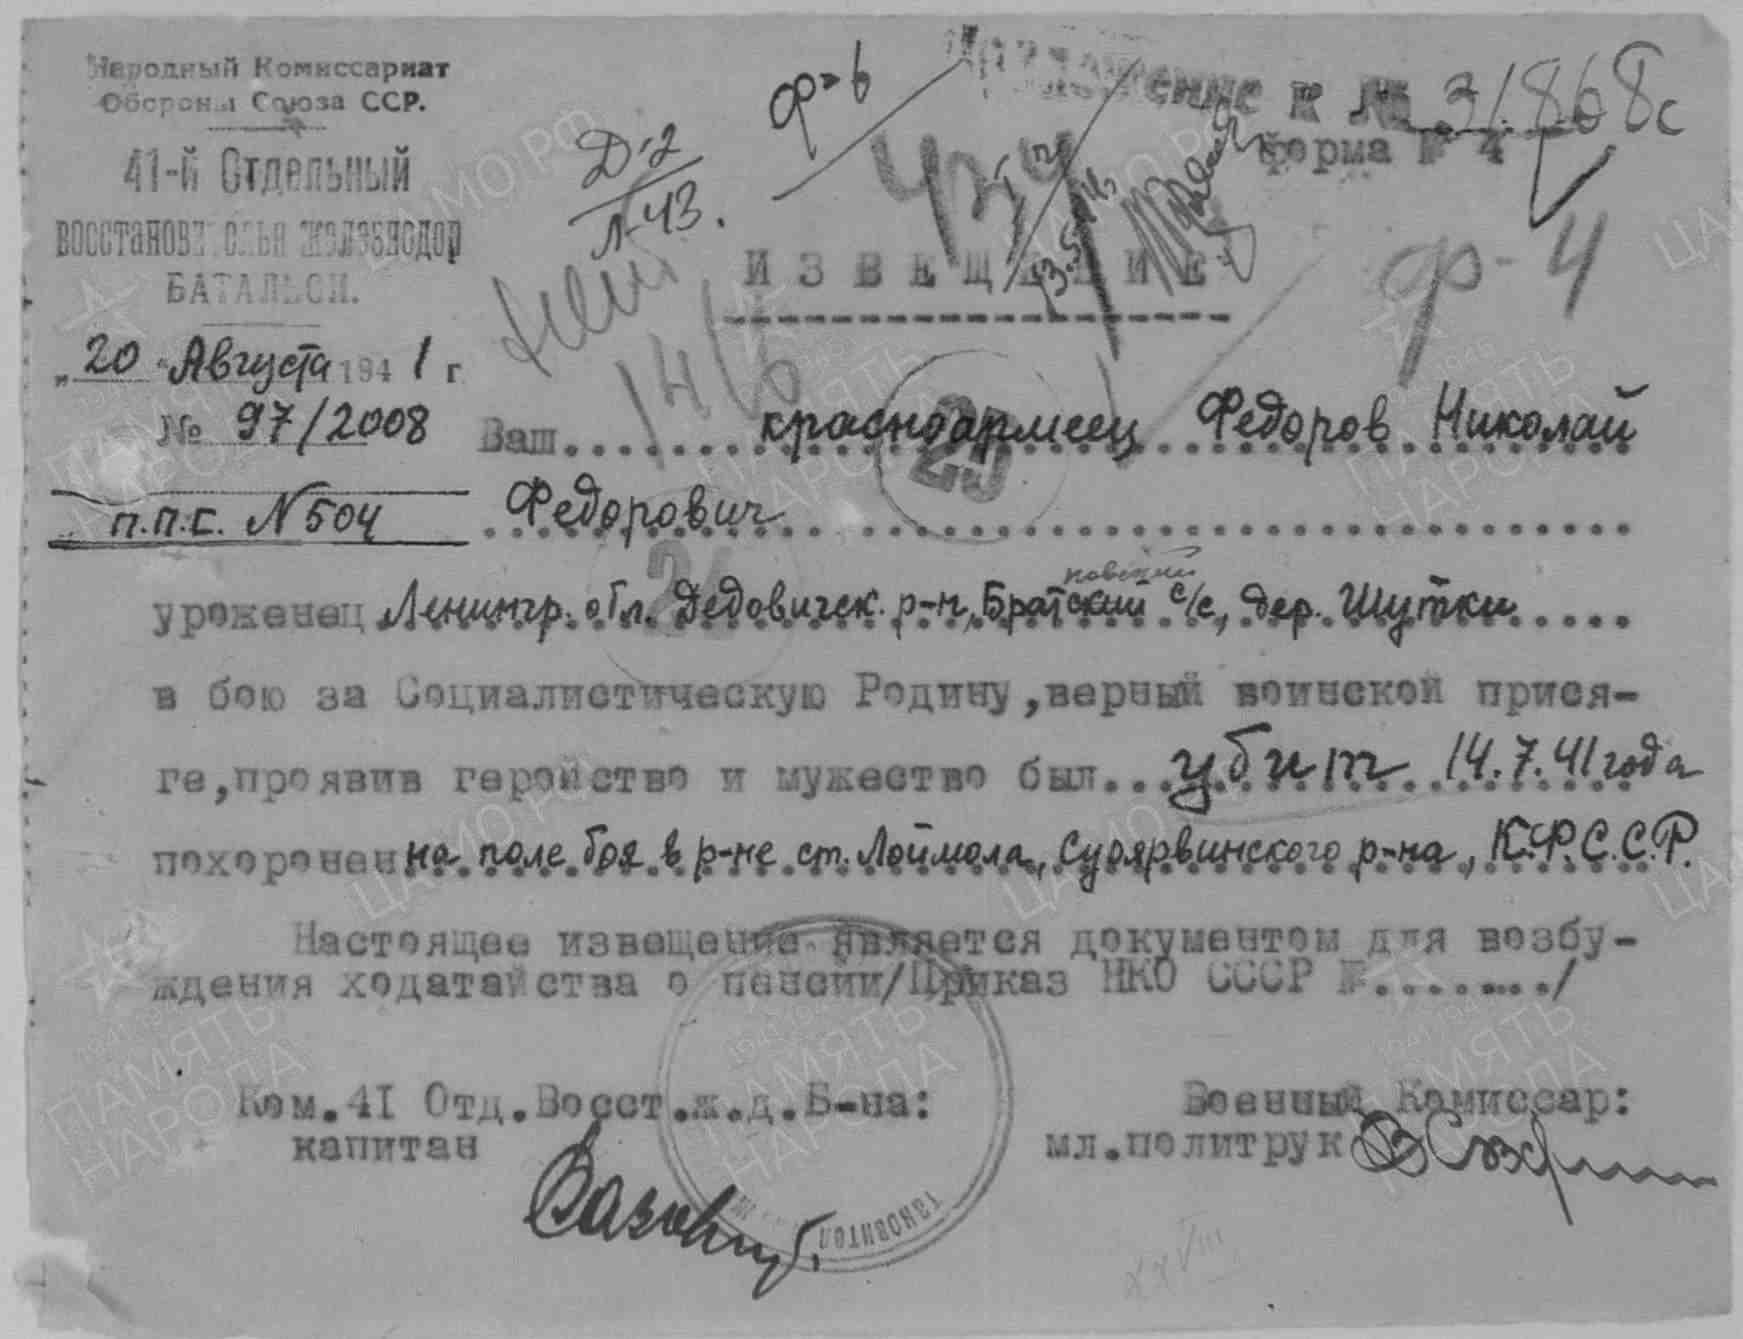 Народный Комиссариат
Обороны Союза ССР.
41-й Отдельный
восстановительн железнодор
БАТАЛЬОН.
„20" Августа 1941 г
№ 97/2008
п.п.с. N 504
Д-2
Л-43.
Ф-6
Приложение к № 31868с
форма № 4
Ф-4
ИЗВЕЩЕНИЕ
1416
25
Ваш красноармеец Федоров Николай
Федорович
24
повский
уроженец Ленингр. обл. Дедовичск. р-н, Братский с/с, дер. Шутки
в бою за Социалистическую Родину, верный воинской прися-
ге, проявив геройство и мужество был убит 14.7.41 года
похоронен на поле боя в р-не ст. Лоймола, Суоярвинского р-на, К.Ф.С.С.Р.
Настоящее извещение является документом для возбу-
ждения ходатайства о пенсии/Приказ НКО СССР №......../
Ком.41 Отд.Восст.ж.д.Б-на:
капитан
Военный Комиссар:
мл.политрук
XXVIII
ЦАМО РФ
1941-1945
ПАМЯТЬ
НАРОДА